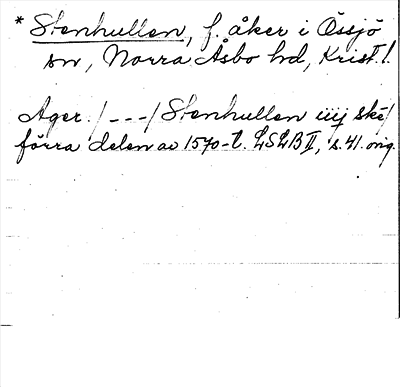 * Stenhullen, f. åker i Össjö
sn, Norra Åsbo hd, Krist. l.
Ager. /---/ Stenhullen iiij ske/
förra delen av 1570-t. LSLB II, s. 41. orig.